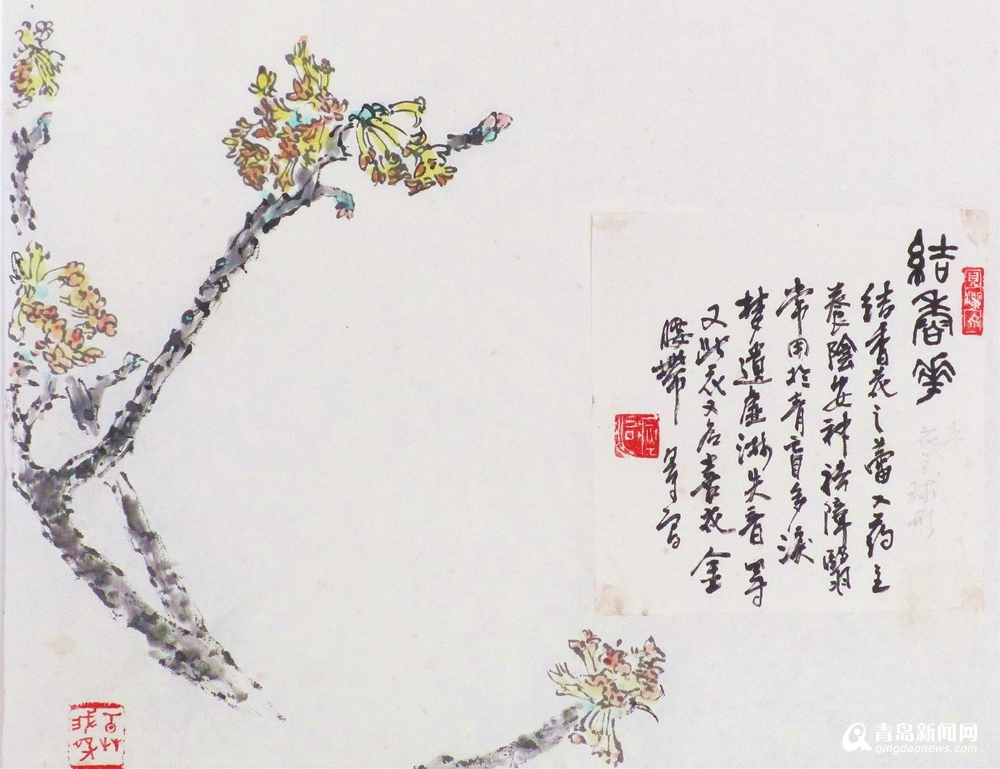 結香花
结香花之蕾入药主
養陰安神祛障翳
常用於青盲多淚
梦遗虚淋失音等
又此花又名喜花金
腰带
等写
球形
青岛新闻网
qingdaonews.com